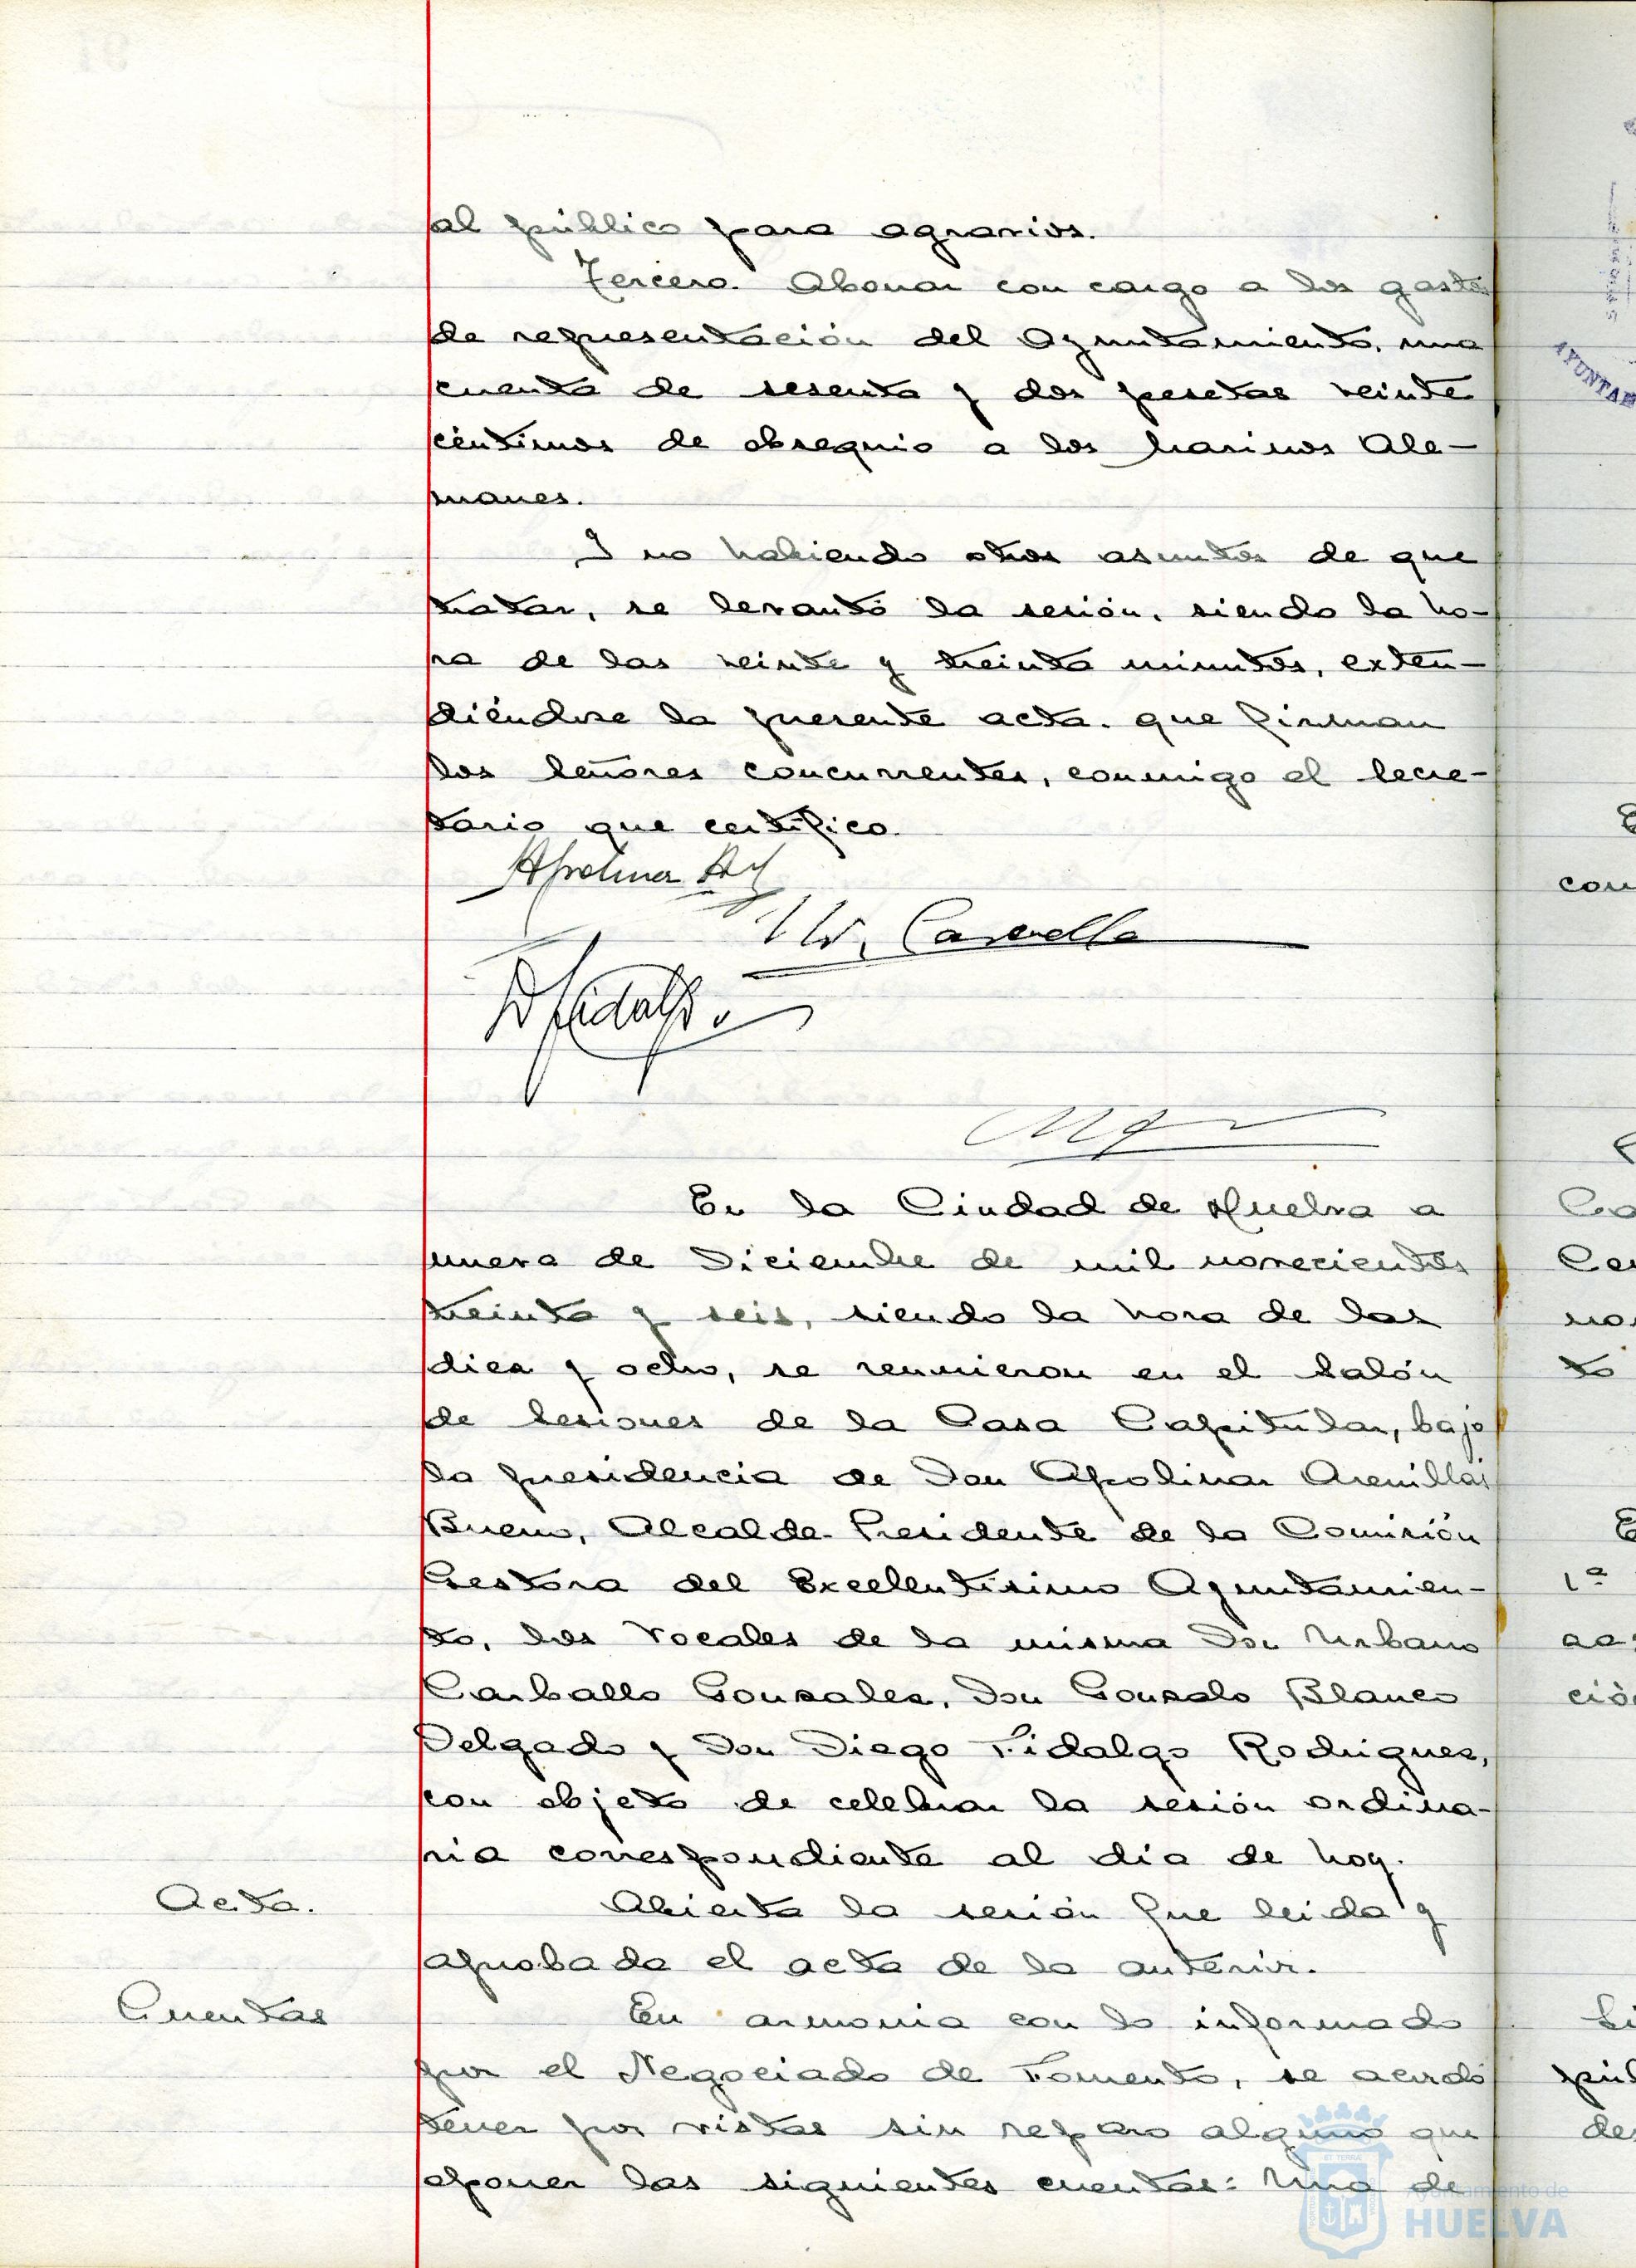 al público para agravios.
Tercero. Abonar con cargo a los gastos
de representación del Ayuntamiento, una
cuenta de sesenta y dos pesetas veinte
céntimos de obsequio a los Marinos Ale-
manes.
Y no habiendo otros asuntos de que
tratar, se levantó la sesión, siendo la ho-
ra de las veinte y treinta minutos, exten-
diéndose la presente acta. que firman
los Señores concurrentes, conmigo el Secre-
tario que certifico.
Apolinar
Carvallo
D Fidalgo
En la Ciudad de Huelva a
nueve de Diciembre de mil novecientos
treinta y seis, siendo la hora de las
diez y ocho, se reunieron en el Salón
de Sesiones de la Casa Capitular, bajo
la presidencia de Don Apolinar Arenillas
Bueno, Alcalde-Presidente de la Comisión
Gestora del Excelentísimo Ayuntamien-
to, los Vocales de la misma Don Urbano
Carballo Gonzales, Don Gonzalo Blanco
Delgado y Don Diego Fidalgo Rodriguez,
con objeto de celebrar la sesión ordina-
ria correspondiente al día de hoy.
Acta.
Abierta la sesión fue leida y
aprobada el acta de la anterior.
Cuentas
En armonia con lo informado
por el Negociado de Fomento, se acordó
tener por vistas sin reparo alguno que
oponer las siguientes cuentas: Una de
Ayuntamiento de
HUELVA
AYUNTAM
con
no
to
1ª
ción
de